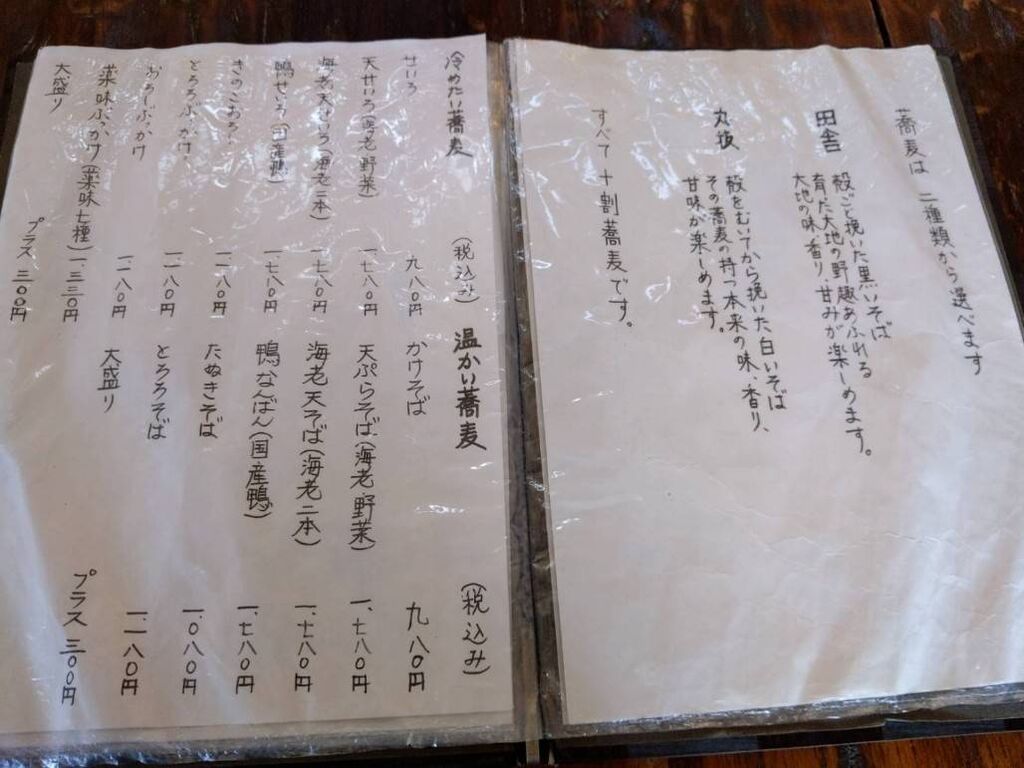 蕎麦は 二種類から選べます
田舎
殻ごと挽いた黒いそば
育った大地の野趣あふれる
大地の味、香り、甘みが楽しめます。
丸抜
殻をむいてから挽いた白いそば
その蕎麦の持つ本来の味、香り、
甘味が楽しめます。
すべて十割蕎麦です。
冷めたい蕎麦 (税込み)
せいろ 九八〇円
天せいろ(海老 野菜) 一、七八〇円
海老天せいろ(海老二本) 一、七八〇円
鴨せいろ(国産鴨) 一、七八〇円
きのこおろし 一、二八〇円
とろろぶっかけ 一、二八〇円
おろしぶっかけ 一、二八〇円
薬味ぶっかけ(薬味七種) 一、三三〇円
大盛り プラス 三〇〇円
温かい蕎麦 (税込み)
かけそば 九八〇円
天ぷらそば(海老 野菜) 一、七八〇円
海老天そば(海老二本) 一、七八〇円
鴨なんばん(国産鴨) 一、七八〇円
たぬきそば 一、〇八〇円
とろろそば 一、二八〇円
大盛り プラス 三〇〇円